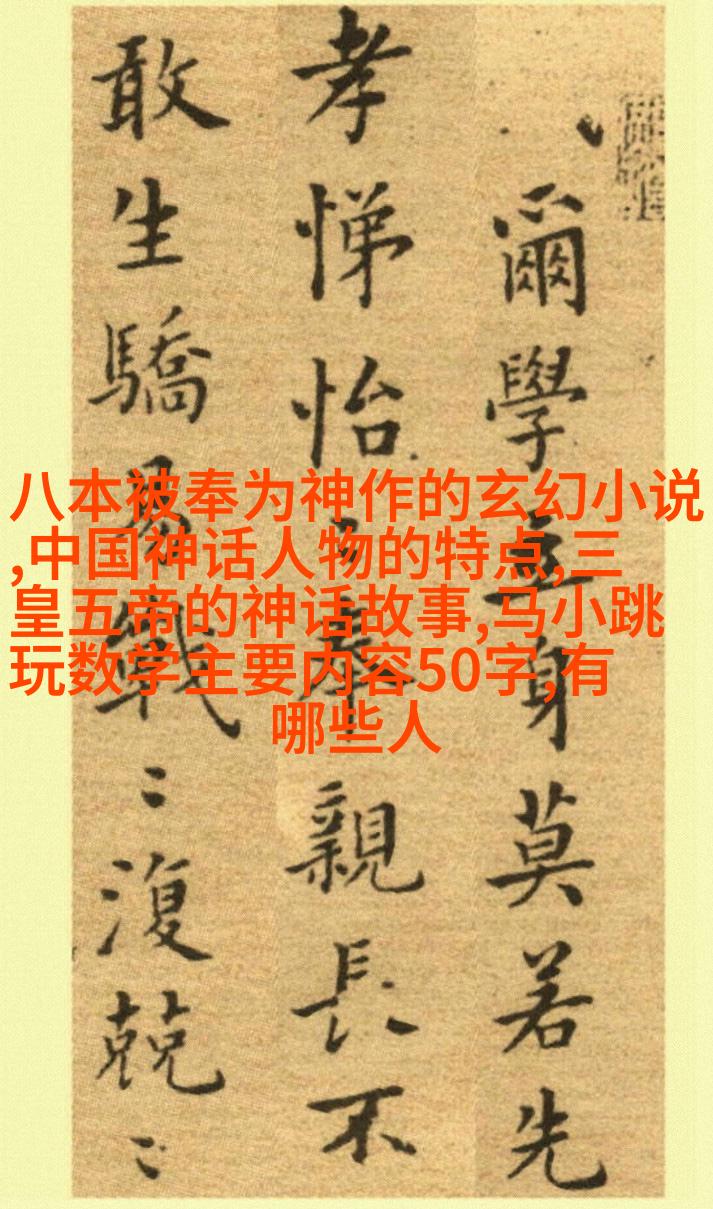 爾學立身莫若先
孝悌怡〻奉親長不
敢生驕易戰〻復兢〻
八本被奉为神作的玄幻小说
,中国神话人物的特点,三
皇五帝的神话故事,马小跳
玩数学主要内容50字,有
哪些人